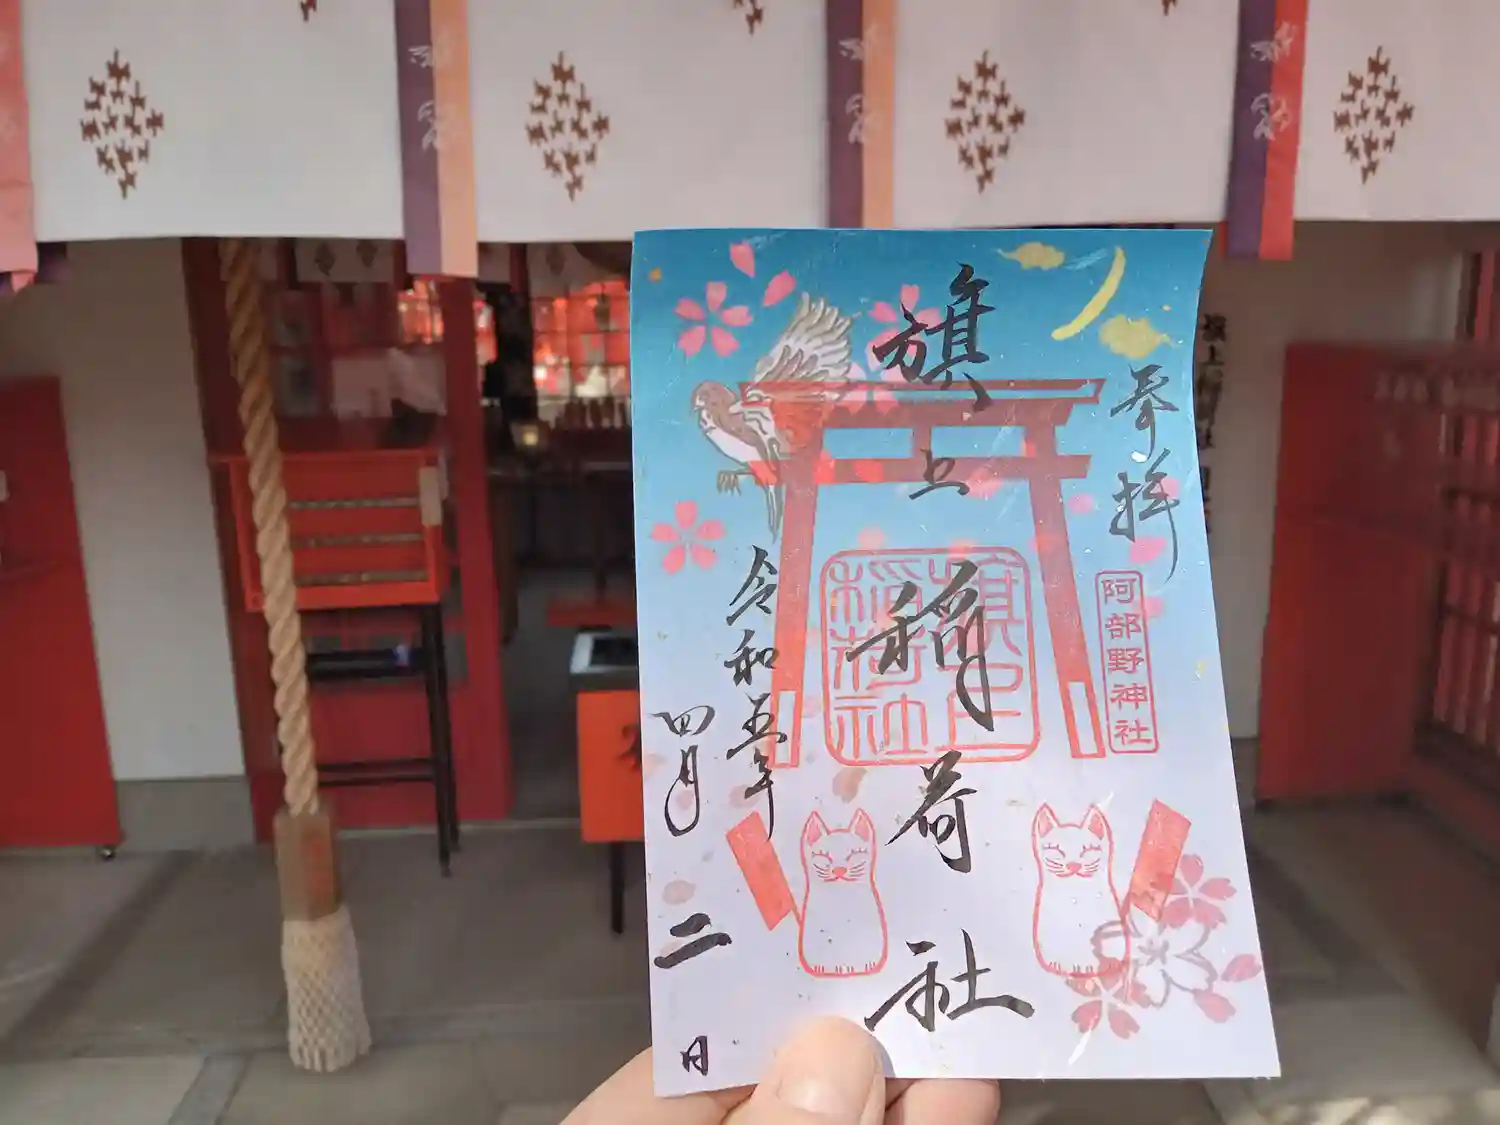 奉拝
阿部野神社
旗上稲荷社
旗上
稲荷社
令和五年
四月二日